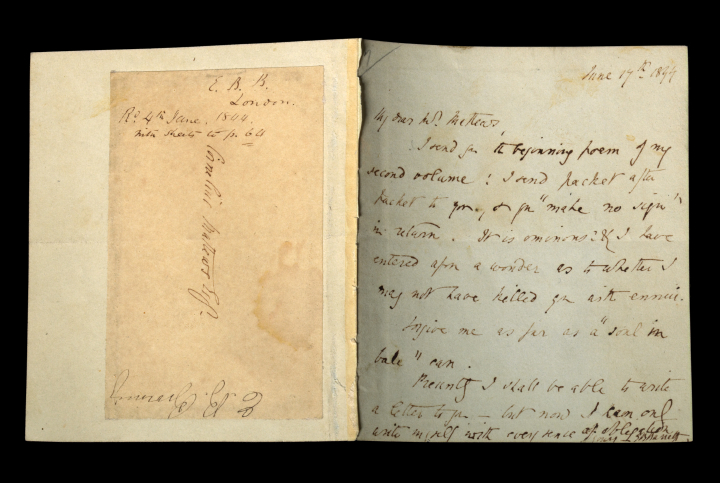 E. B. B.
London.
Rd. 4th June. 1844.
with sheets to p. 64
Cornelius Mathews Esq.
June 17th 1844
My dear Mr. Mathews
I send you the beginning poem of my
second volume: I send packet after
packet to you, & you "make no sign"
in return. It is ominous: & I have
entered upon a wonder as to whether I
may not have killed you with ennui.
Forgive me as far as a "soul in
bale" can.
Presently I shall be able to write
a letter to you — but now I can only
write myself with every sense of obligation
yours E B Barrett